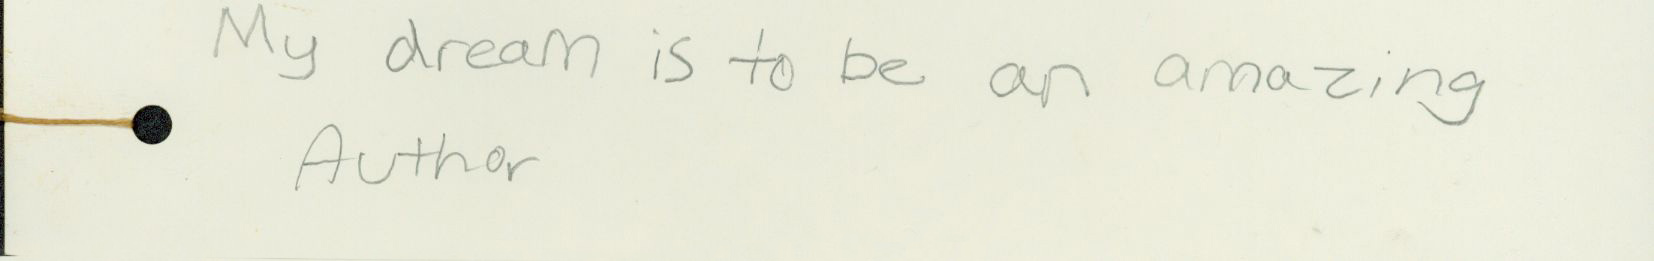 My dream is to be an amazing
Author